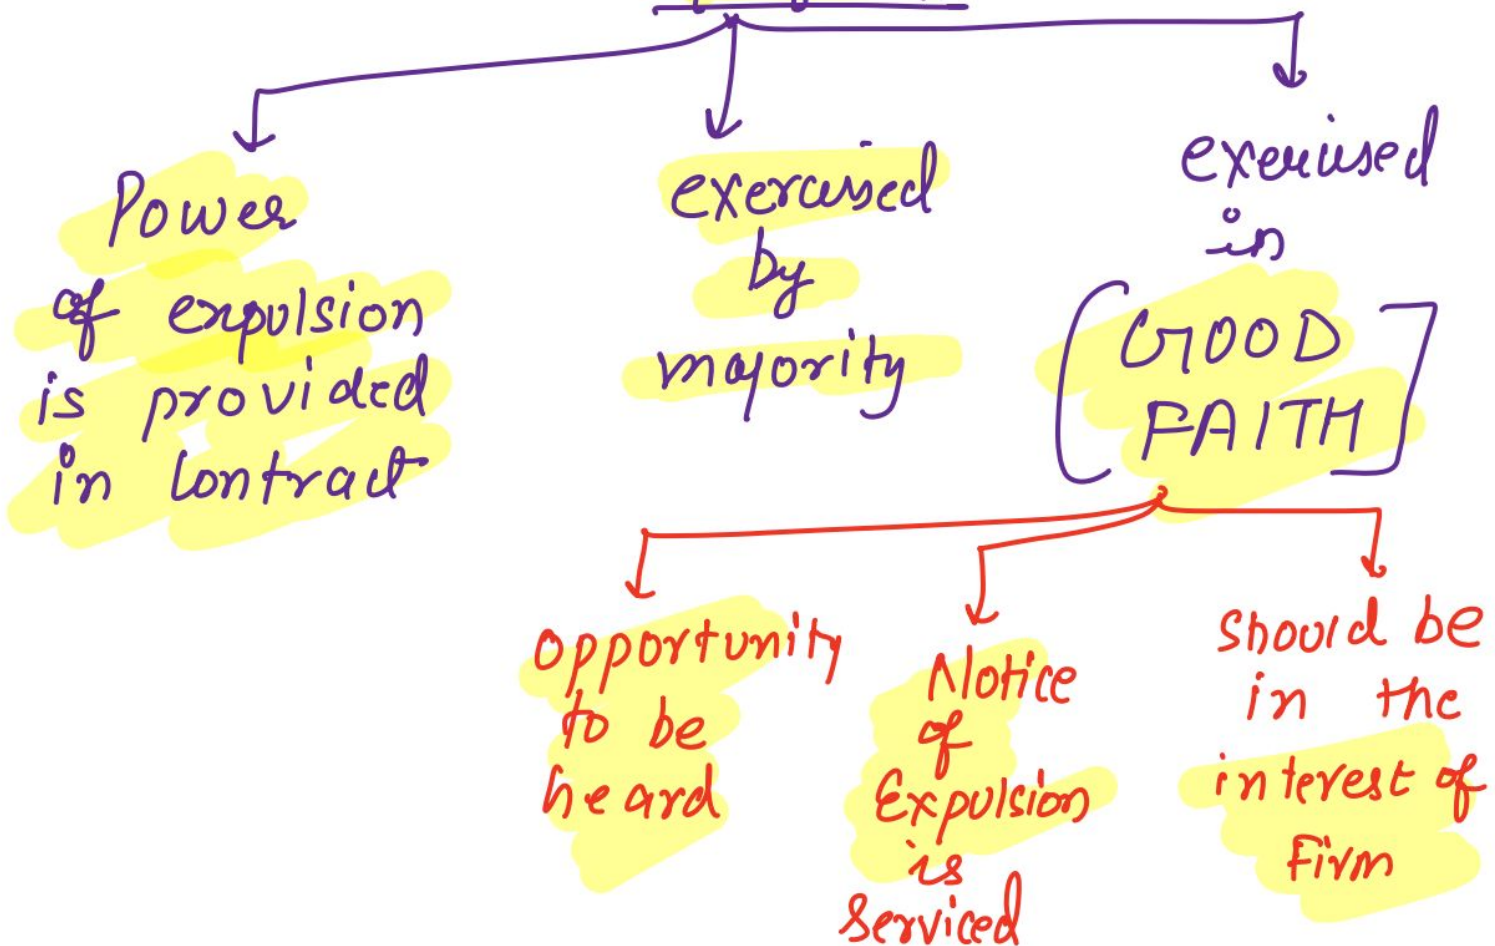 Power
of expulsion
is provided
in contract
exercised
by
majority
exercised
in
GOOD
FAITH
opportunity
to be
heard
Notice
of
Expulsion
is
serviced
should be
in the
interest of
Firm